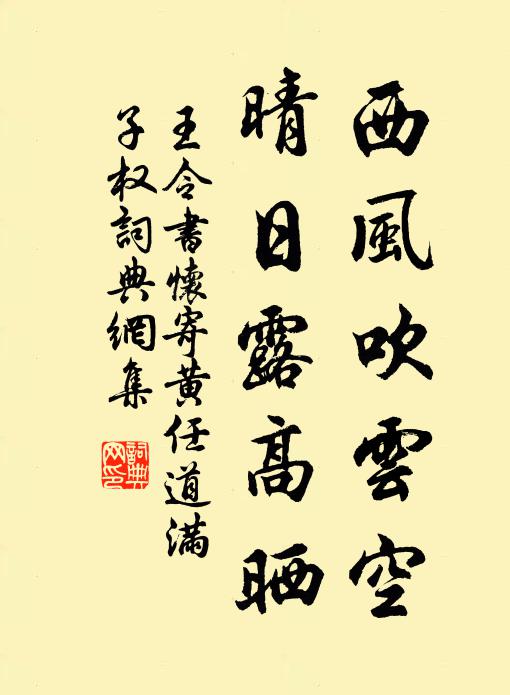 西風吹雲空
晴日露高晒
王令書懷寄黃任道滿
子权詞典網集
詞典
网印